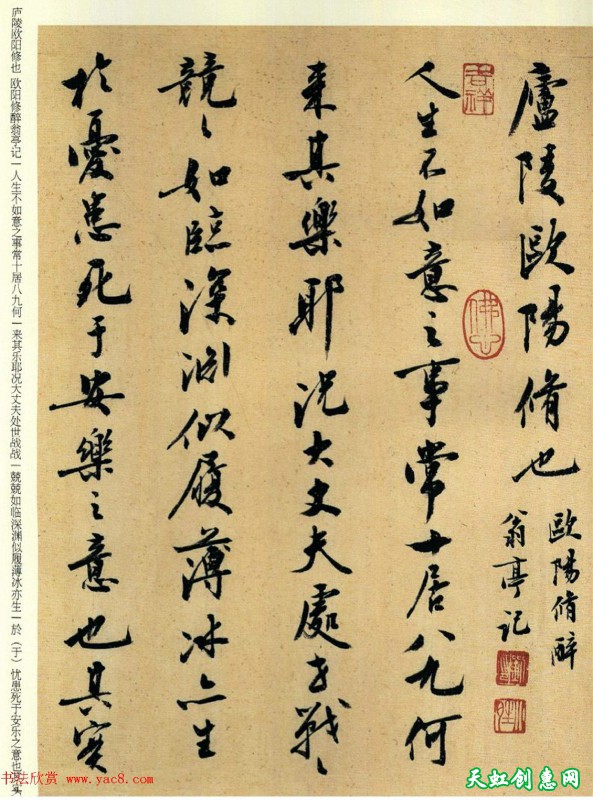 廬陵歐陽脩也
歐陽脩醉
翁亭記
吉祥
人生不如意之事常十居八九何
来其樂耶况大丈夫處世戰〻
競〻如臨深渊似履薄冰亦生
於憂患死于安樂之意也其实
庐陵欧阳修也 欧阳修醉翁亭记—人生不如意之事常十居八九何—来其乐耶况大丈夫处世战战—兢兢如临深渊似履薄冰亦生—於（于）忧患死于安乐之意也其实
书法欣赏 www.yac8.com
天虹创惠网